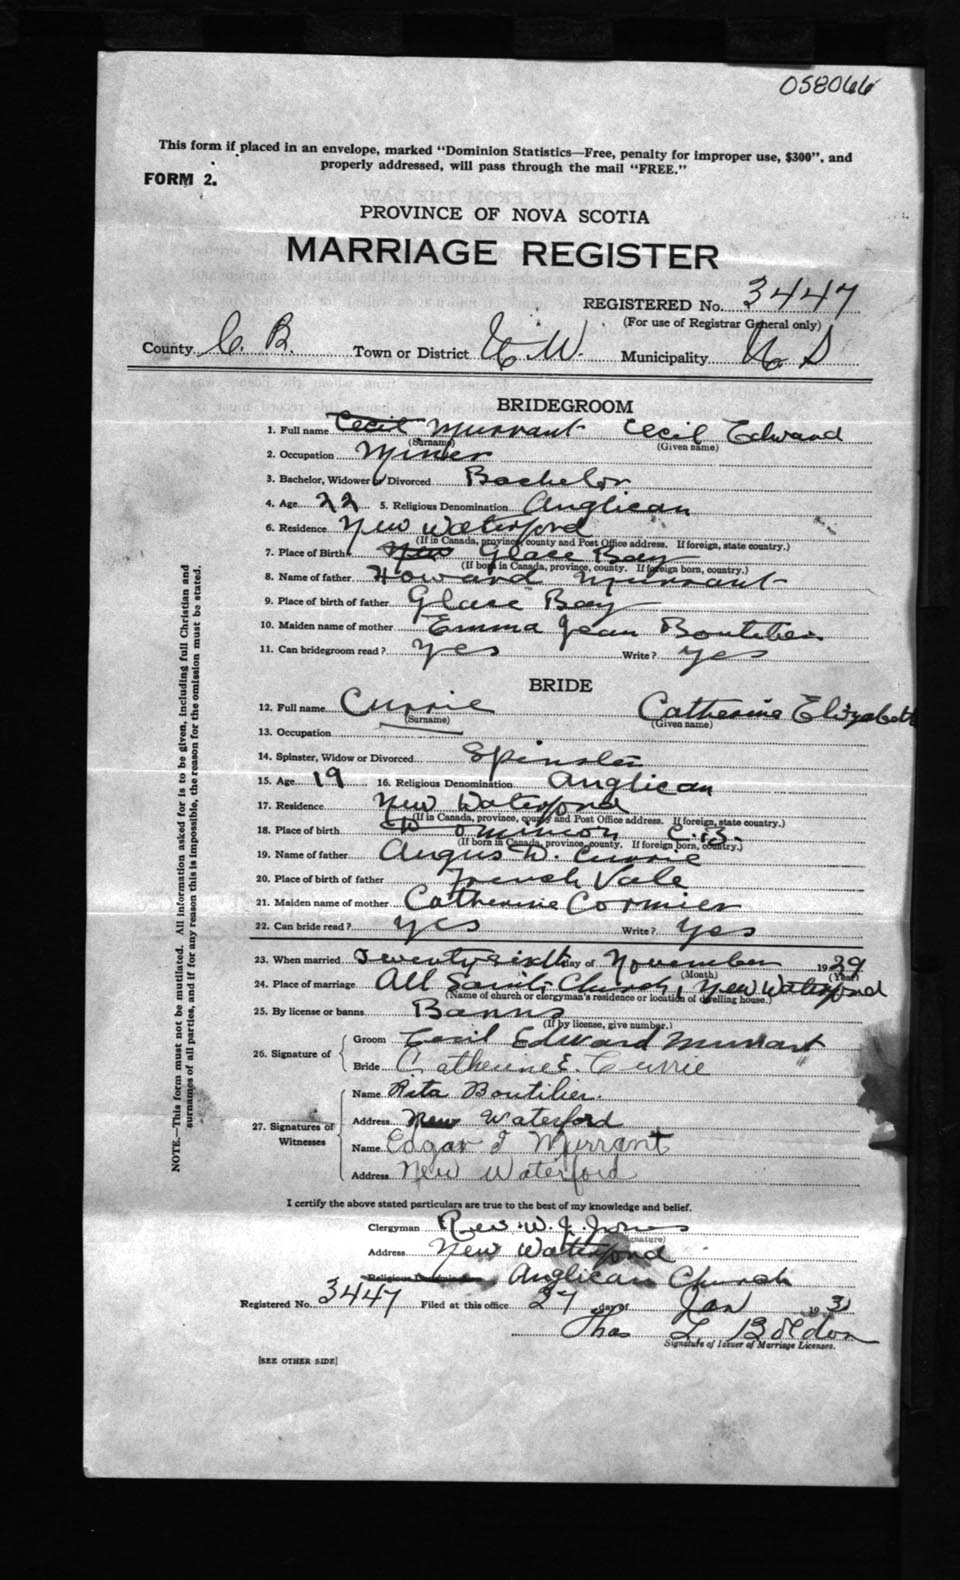 058066
This form if placed in an envelope, marked "Dominion Statistics—Free, penalty for improper use, $300", and
properly addressed, will pass through the mail "FREE."
FORM 2.
PROVINCE OF NOVA SCOTIA
MARRIAGE REGISTER
REGISTERED No. 3447
(For use of Registrar General only)
County C. B. Town or District N W. Municipality N S
BRIDEGROOM
1. Full name Cecil Murrant Cecil Edward
(Surname) (Given name)
2. Occupation Miner
3. Bachelor, Widower or Divorced Bachelor
4. Age 22 5. Religious Denomination Anglican
6. Residence New Waterford
(If in Canada, province, county and Post Office address. If foreign, state country.)
7. Place of Birth New Glace Bay
(If born in Canada, province, county. If foreign born, country.)
8. Name of father Howard Murrant
9. Place of birth of father Glace Bay
10. Maiden name of mother Emma Jean Boutilier
11. Can bridegroom read? yes Write? yes
BRIDE
12. Full name Currie Catherine Elizabeth
(Surname) (Given name)
13. Occupation
14. Spinster, Widow or Divorced Spinster
15. Age 19 16. Religious Denomination Anglican
17. Residence New Waterford
(If in Canada, province, county and Post Office address. If foreign, state country.)
18. Place of birth Dominion C.B.
(If born in Canada, province, county. If foreign born, country.)
19. Name of father Angus D. Currie
20. Place of birth of father French Vale
21. Maiden name of mother Catherine Cormier
22. Can bride read? yes Write? yes
23. When married Twenty sixth day of November 1929
(Month) (Year)
24. Place of marriage All Saints Church, New Waterford
(Name of church or clergyman's residence or location of dwelling house.)
25. By license or banns Banns
(If by license, give number.)
26. Signature of Groom Cecil Edward Murrant
Bride Catherine E. Currie "
27. Signatures of Witnesses Name Rita Boutilier.
Address New Waterford
Name Edgar J Murrant
Address New Waterford
I certify the above stated particulars are true to the best of my knowledge and belief.
Clergyman Rev. W. J.
(Signature)
Address New Waterford
Religious Denomination Anglican Church
Registered No. 3447 Filed at this office 27 day of Jan 193
Thos L
Signature of Issuer of Marriage Licenses.
[SEE OTHER SIDE]
NOTE.—This form must not be mutilated. All information asked for is to be given, including full Christian and
surnames of all parties, and if for any reason this is impossible, the reason for the omission must be stated.